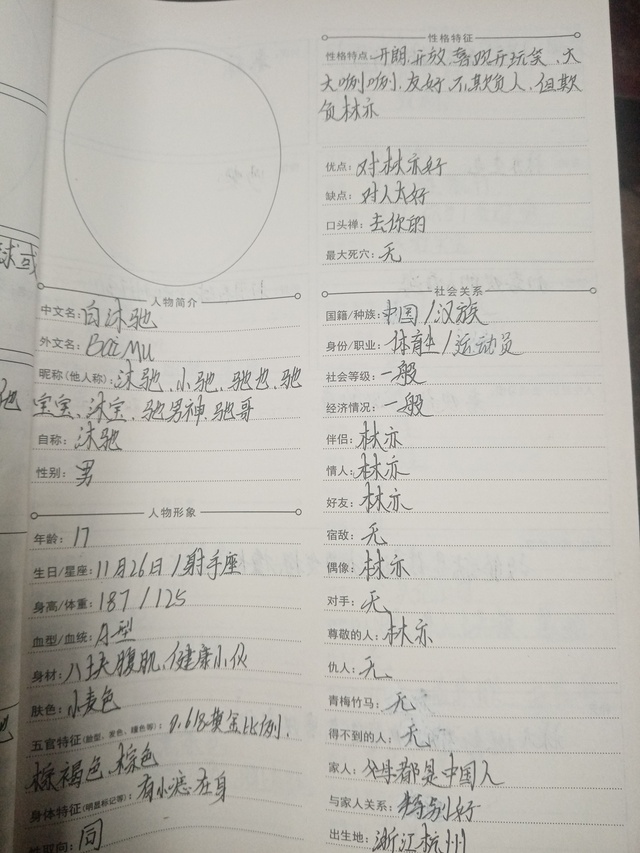 人物简介
中文名：白沐驰
外文名：Bai Mu
昵称(他人称)：沐驰、小驰、驰也、驰
宝宝、沐宝、驰男神、驰哥
自称：沐驰
性别：男
人物形象
年龄：17
生日/星座：11月26日/射手座
身高/体重：187/125
血型/血统：A型
身材：八块腹肌、健康小伙
肤色：小麦色
五官特征(脸型、发色、瞳色等)：0.618黄金比例、
棕褐色、棕色
身体特征(明显标记等)：有小痣在身
性取向：同
性格特征
性格特点：开朗、开放、喜欢开玩笑、大
大咧咧、友好、不欺负人、但欺
负林亦
优点：对林亦好
缺点：对人太好
口头禅：去你的
最大死穴：无
社会关系
国籍/种族：中国/汉族
身份/职业：体育生/运动员
社会等级：一般
经济情况：一般
伴侣：林亦
情人：林亦
好友：林亦
宿敌：无
偶像：林亦
对手：无
尊敬的人：林亦
仇人：无
青梅竹马：无
得不到的人：无
家人：父母都是中国人
与家人关系：特别好
出生地：浙江杭州